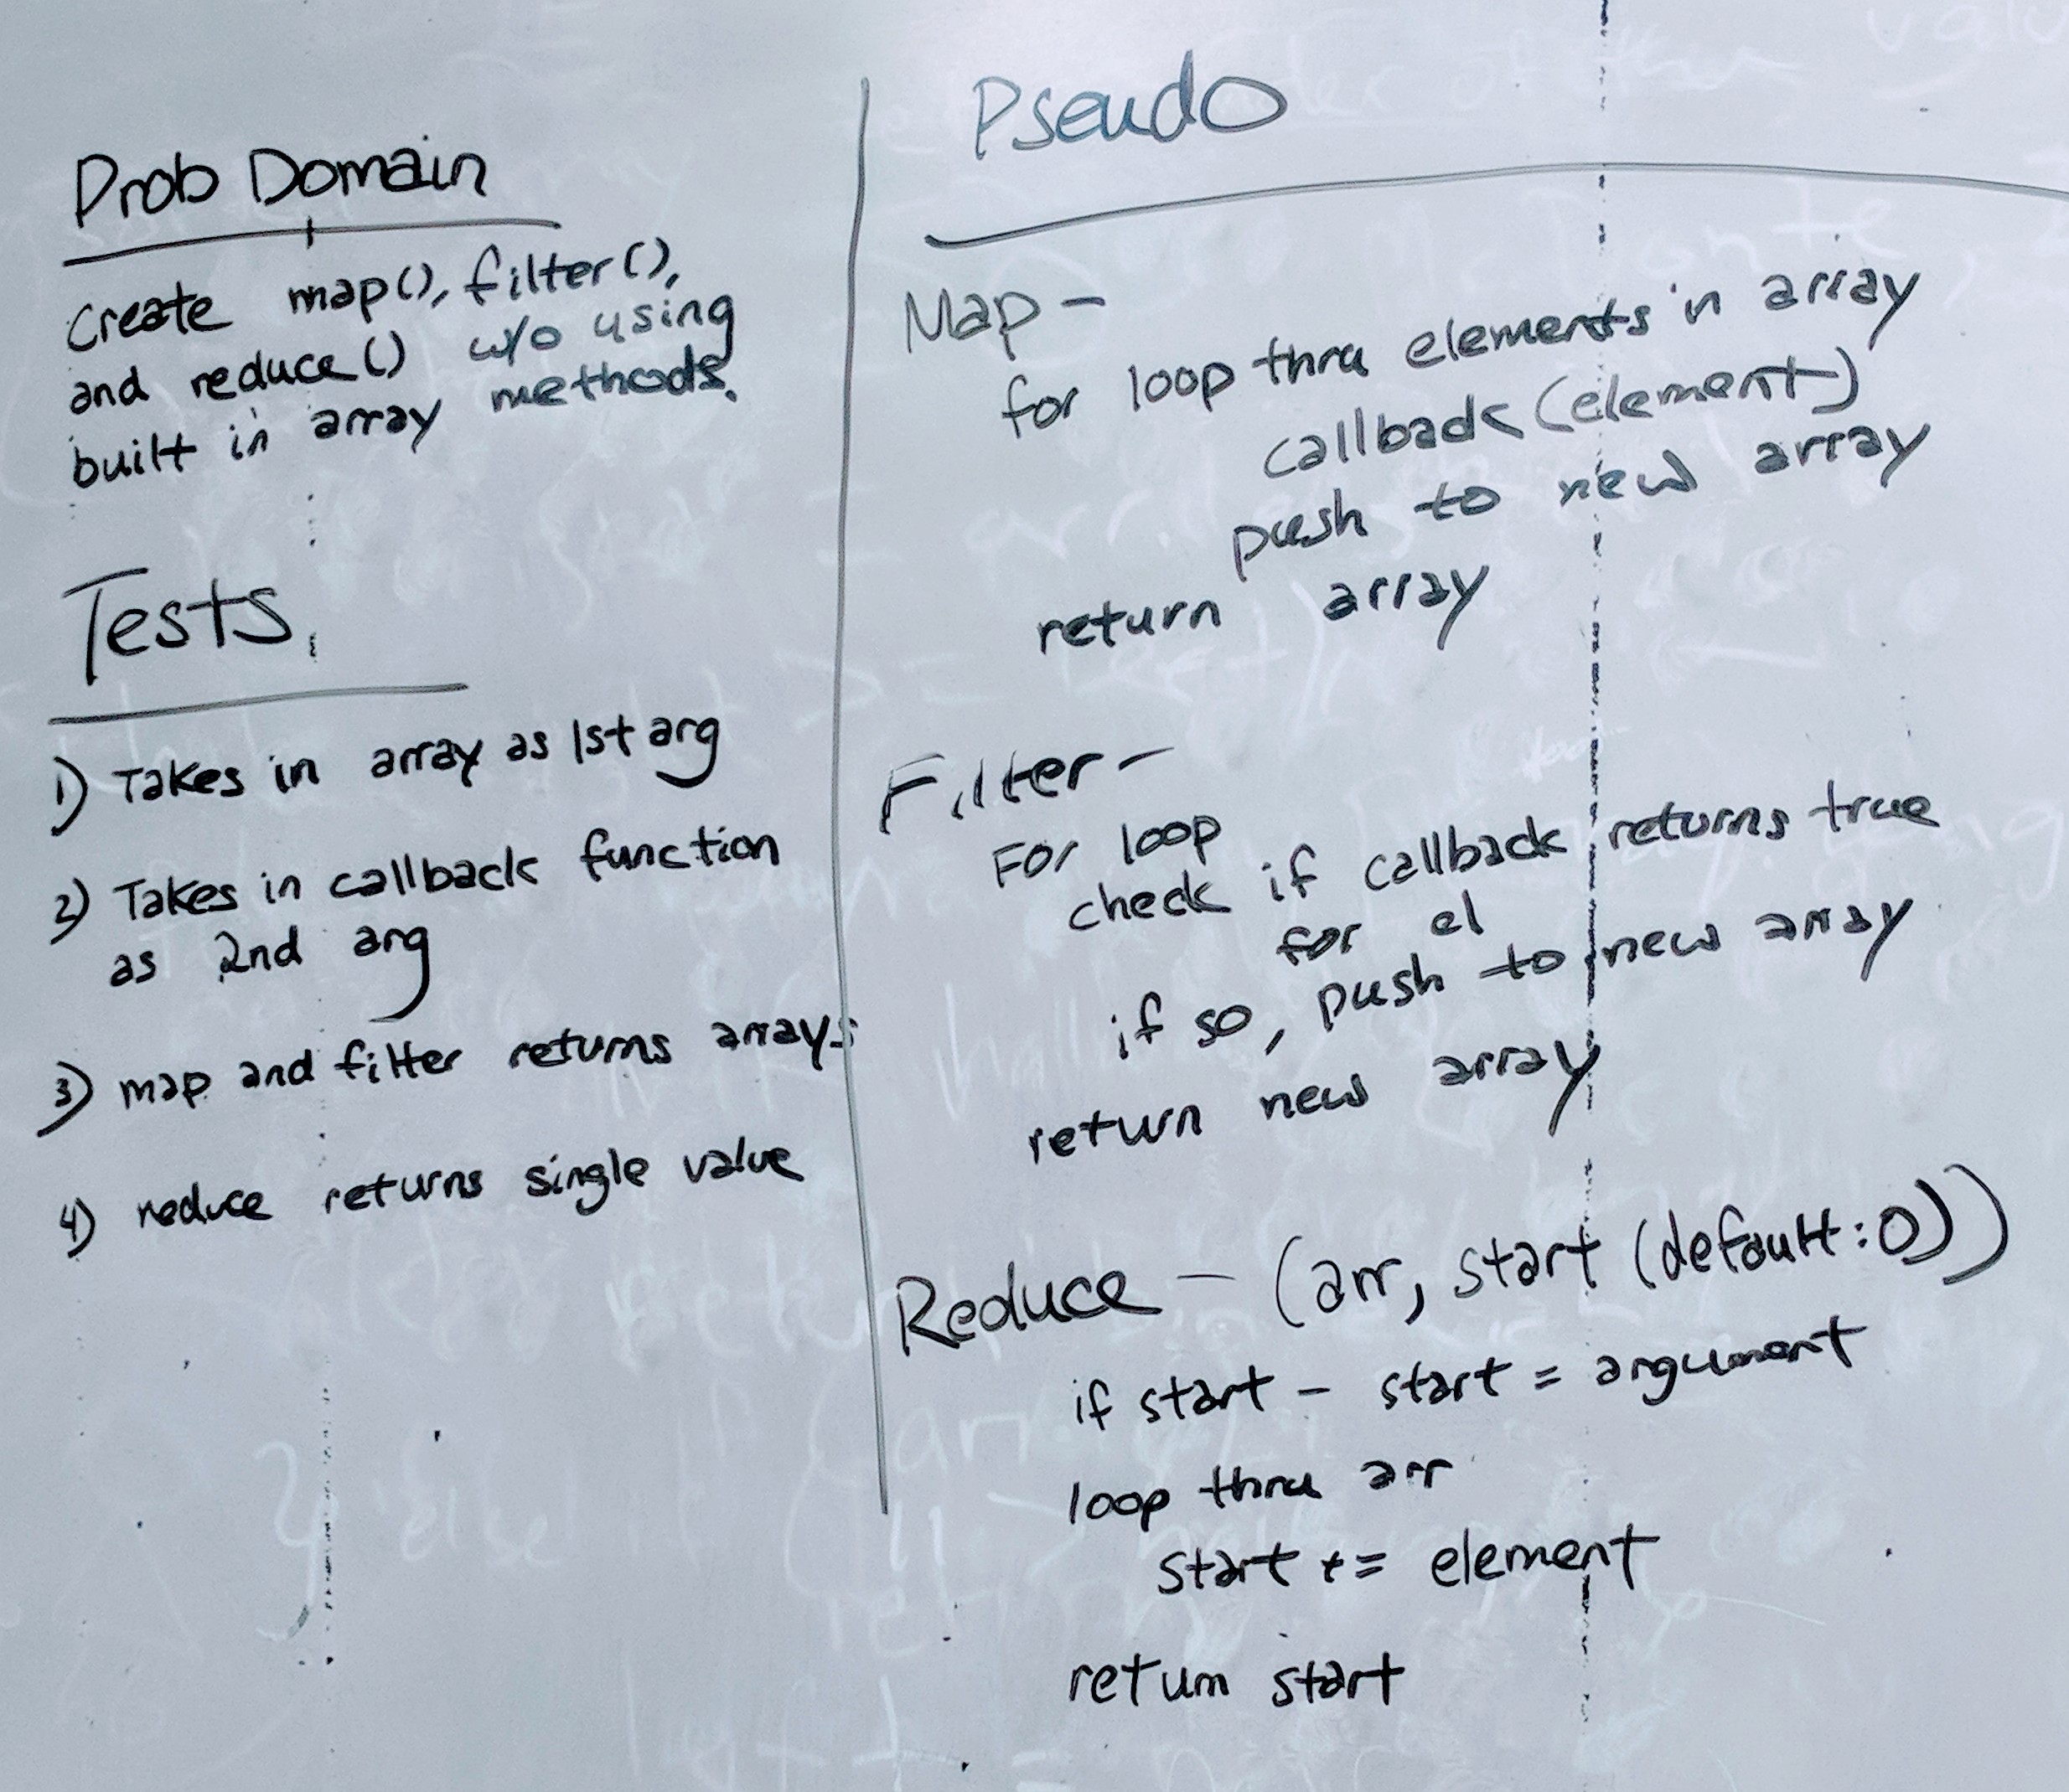 Prob Domain
Create map(), filter(),
and reduce() w/o using
built in array methods.
Tests
1) Takes in array as 1st arg
2) Takes in callback function
as 2nd arg
3) map and filter returns arrays
4) reduce returns single value
Pseudo
Map -
for loop thru elements in array
callback (element)
push to new array
return array
Filter -
For loop
check if callback returns true
for el
if so, push to new array
return new array
Reduce - (arr, start (default: 0))
if start - start = argument
loop thru arr
start += element
return start